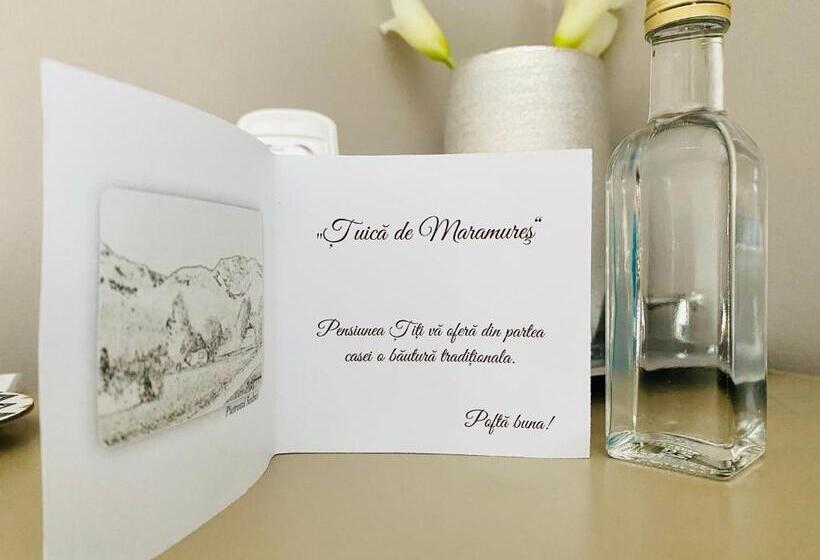 „Țuică de Maramureș“
Pensiunea Tiți vă oferă din partea
casei o băutură tradiționala.
Poftă buna!